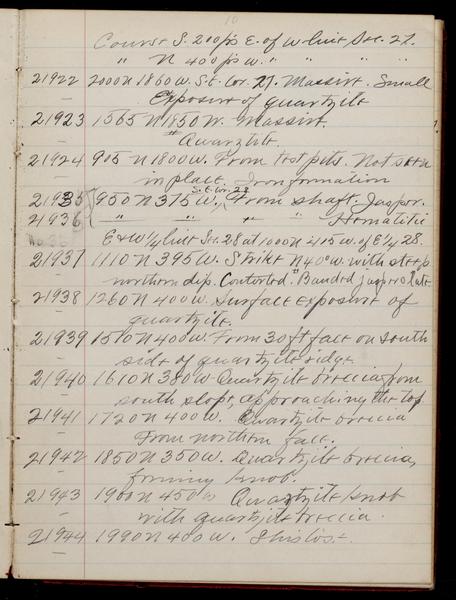 10
Course S. 200 ps E. of W line Sec. 27.
" N 400 ps W. " " " "
21922 2000 N 1860 W. S.E. Cor. 27. Massive. Small
exposure of quartzite
21923 1565 N 1850 W. Massive.
Quartzite.
21924 905 N 1800 W. From test pits. Not seen
in place. Iron formation
S.E. Cor. 28
21935 950 N 375 W. From shaft. Jasper.
21936 " " " " Hematitic
E & W 1/4 line Sec. 28 at 1000 N 405 W. of E 1/4 28.
21937 1110 N 395 W. Strike N 40° W. with steep
northern dip. Contorted. Banded jasper & slate
21938 1260 N 400 W. Surface exposure of
quartzite.
21939 1510 N 400 W. From 30 ft face on south
side of quartzite ridge.
21940 1610 N 380 W. Quartzite breccia from
south slope, approaching the top
21941 1720 N 400 W. Quartzite breccia
From northern face.
21942 1850 N 350 W. Quartzite breccia,
forming knob.
21943 1900 N 450 W Quartzite knob
with quartzite breccia.
21944 1990 N 400 W.